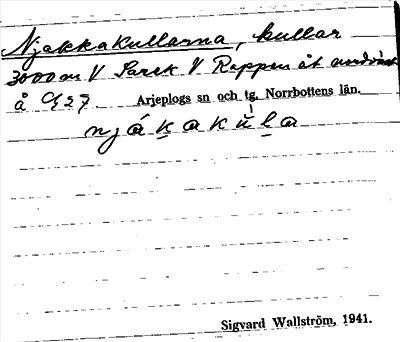 Njakkakullarna, kullar
3000 m V Sarek V Rappen åt nordväst
å 9,27 Arjeplogs sn och tg, Norrbottens län.
njákakūla
Sigvard Wallström, 1941.